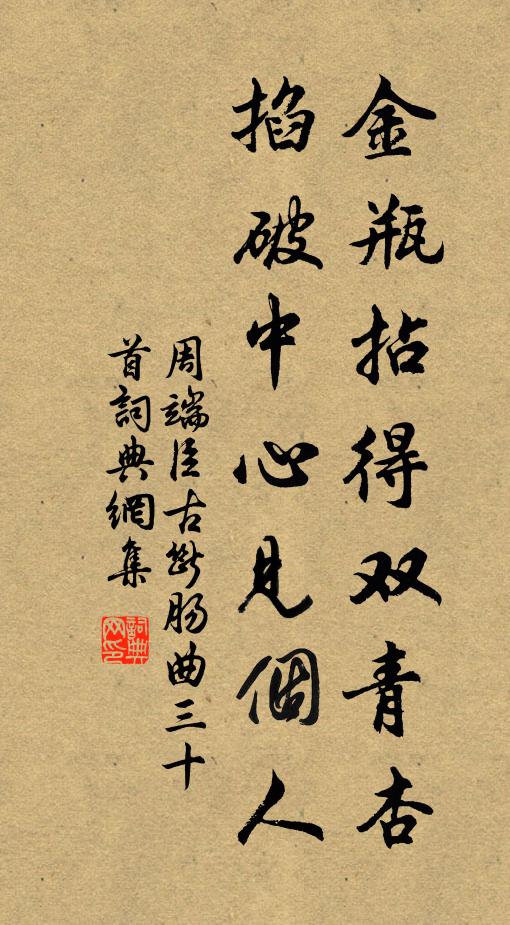 金瓶拈得双青杏
掐破中心見個人
周端臣古断腸曲三十
首詞典網集
詞典网印